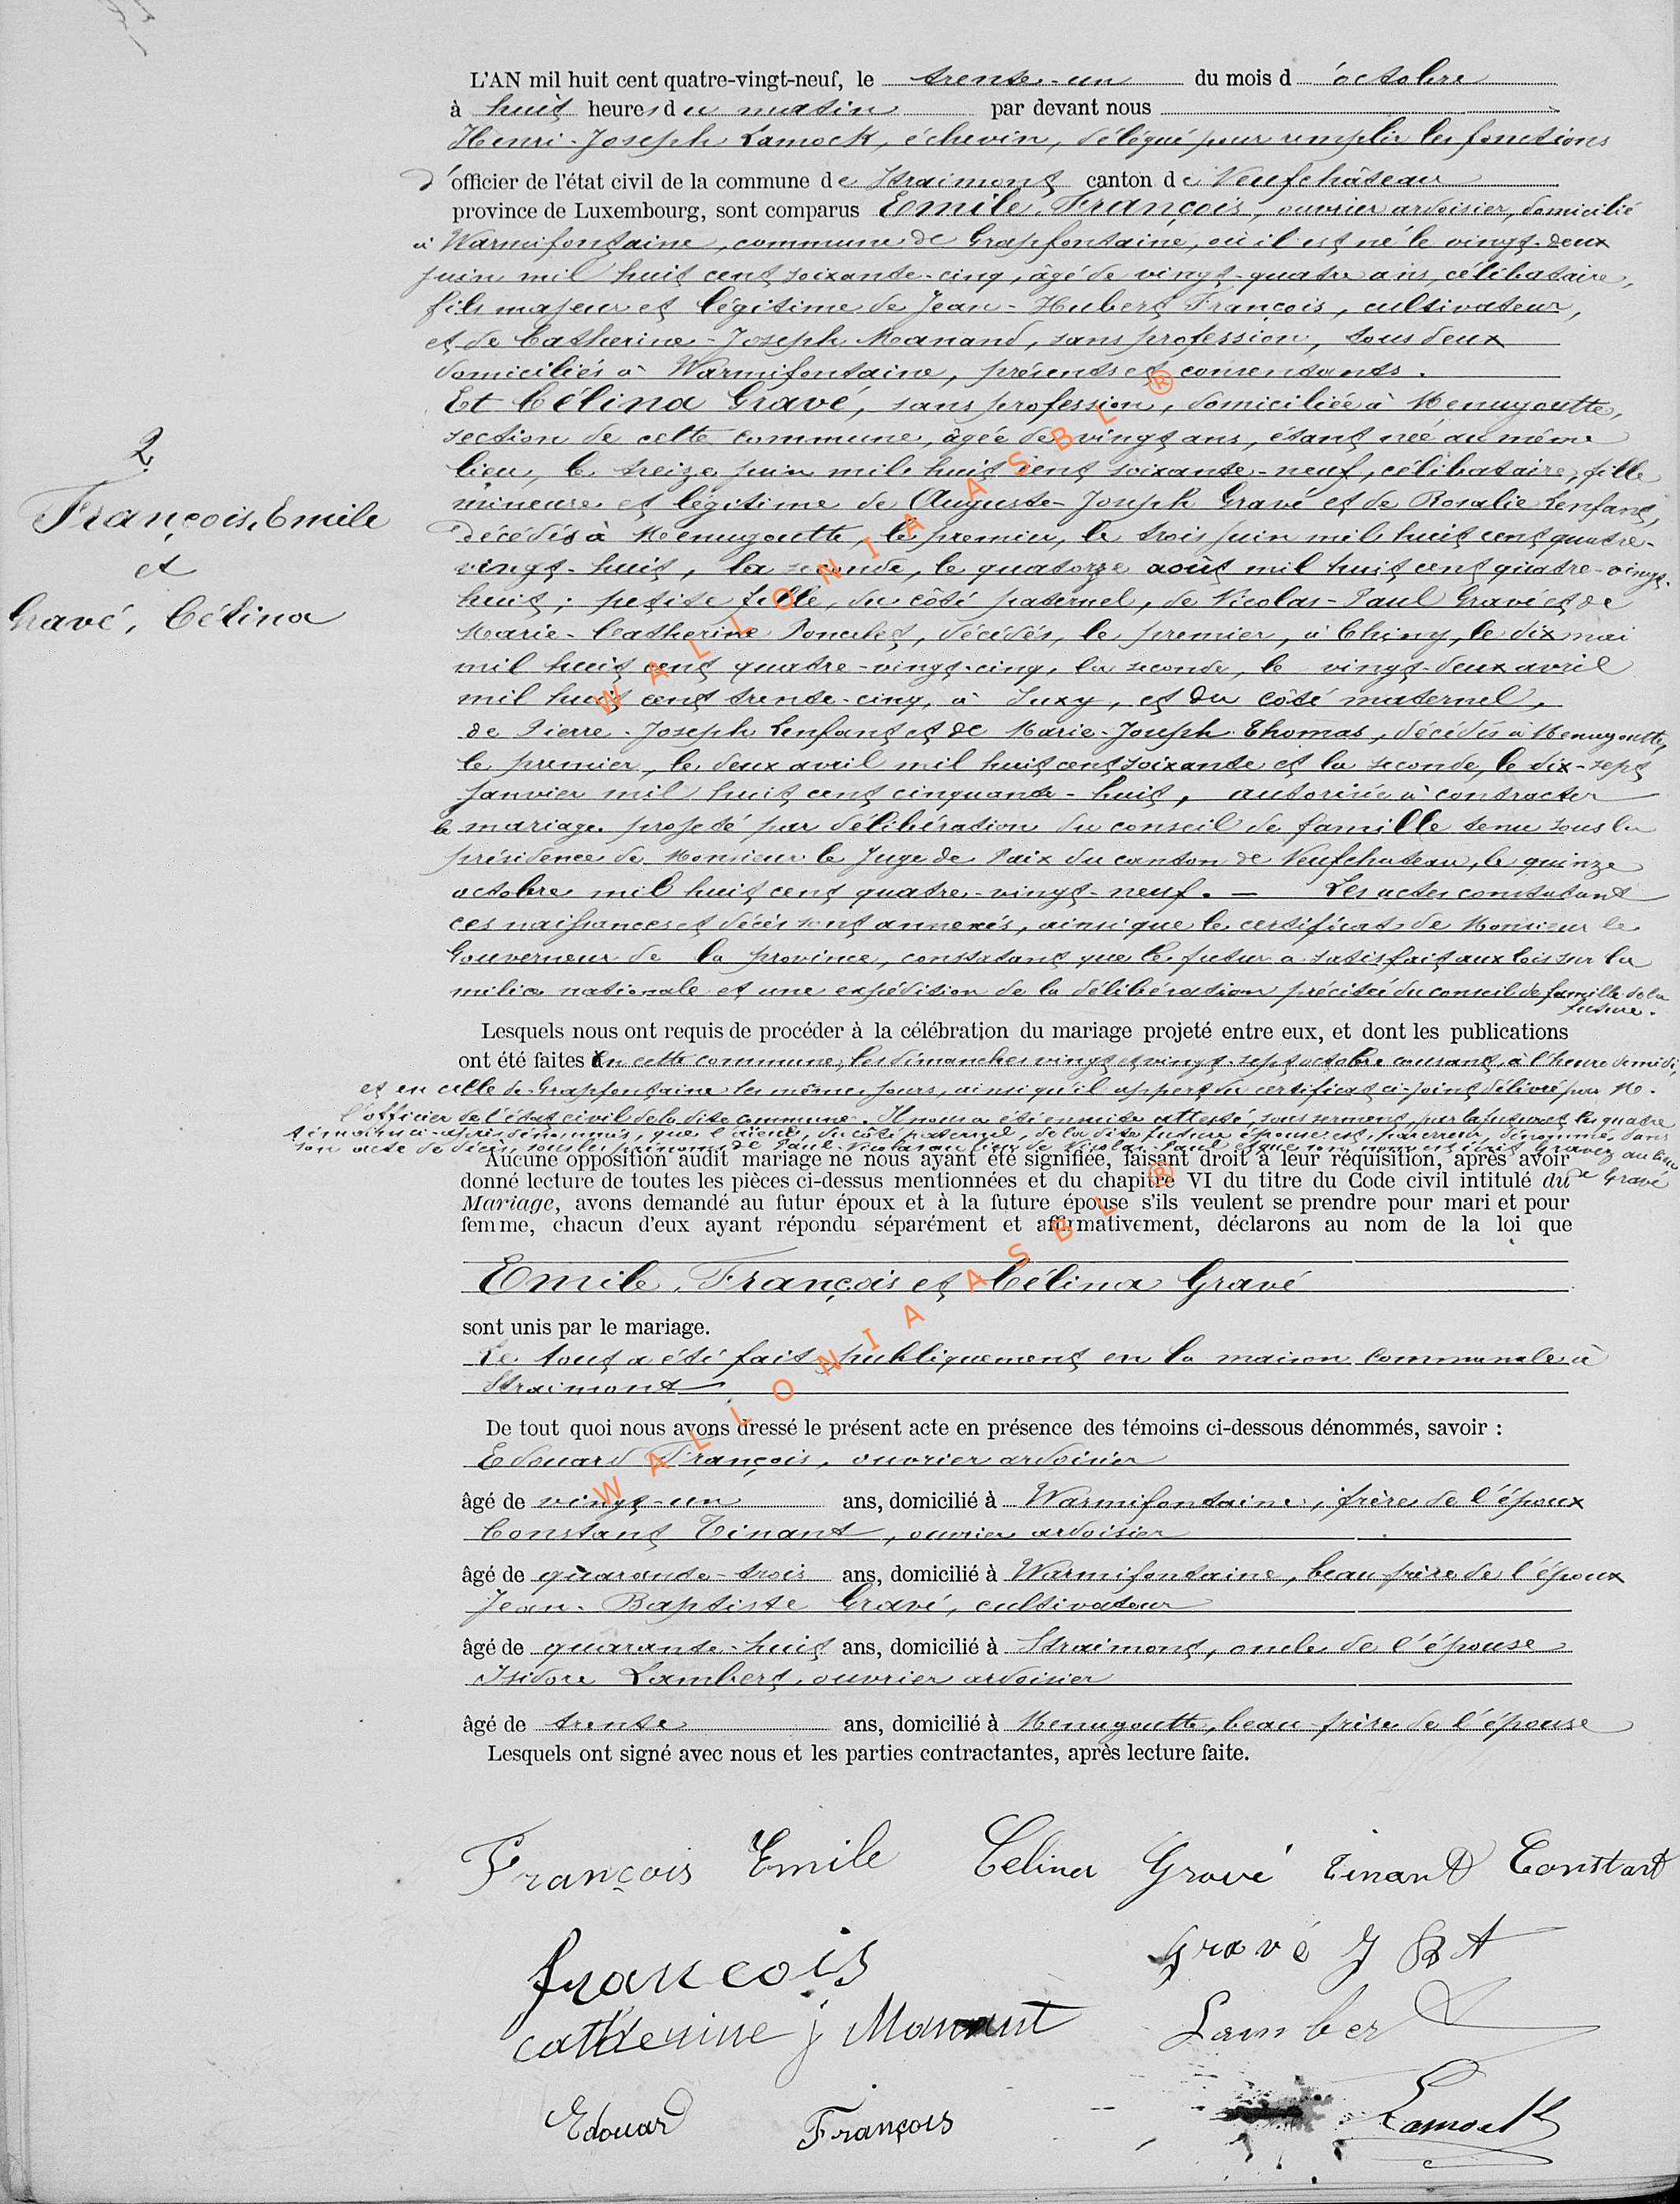 L'AN mil huit cent quatre-vingt-neuf, le trente-un du mois d'octobre
à huit heures du matin par devant nous
Henri-Joseph Lamock, échevin, délégué pour remplir les fonctions
d'officier de l'état civil de la commune de Straimont canton de Neufchâteau
province de Luxembourg, sont comparus Emile François, ouvrier ardoisier, domicilié
à Warmifontaine, commune de Grapfontaine, où il est né le vingt-deux
juin mil huit cent soixante-cinq, âgé de vingt-quatre ans, célibataire,
fils majeur et légitime de Jean-Hubert François, cultivateur,
et de Catherine-Joseph Manand, sans profession, tous deux
domiciliés à Warmifontaine, présents et consentants.
Et Célina Gravé, sans profession, domiciliée à Menugoutte,
section de cette commune, âgée de vingt ans, étant née au même
lieu, le treize juin mil huit cent soixante-neuf, célibataire, fille
mineure et légitime de Auguste-Joseph Gravé et de Rosalie Lenfant,
décédés à Menugoutte, le premier, le trois juin mil huit cent quatre-
vingt-huit, la seconde, le quatorze août mil huit cent quatre-vingt-
huit; petite fille, du côté paternel, de Nicolas-Paul Gravé et de
Marie-Catherine Poncelet, décédés, le premier, à Chiny, le dix mai
mil huit cent quatre-vingt-cinq, la seconde, le vingt-deux avril
mil huit cent trente-cinq, à Suxy, et du côté maternel,
de Pierre-Joseph Lenfant et de Marie-Joseph Thomas, décédés à Menugoutte,
le premier, le deux avril mil huit cent soixante et la seconde, le dix-sept
janvier mil huit cent cinquante-huit, autorisée à contracter
le mariage projeté par délibération du conseil de famille tenu sous la
présidence de Monsieur le Juge de Paix du canton de Neufchateau, le quinze
octobre mil huit cent quatre-vingt-neuf. — Les actes constatant
ces naissances et décès sont annexés, ainsi que le certificat de Monsieur le
Gouverneur de la province, constatant que le futur a satisfait aux lois sur la
milice nationale et une expédition de la délibération précitée du conseil de famille de la
future.
2
François, Emile
et
Gravé, Célina
Lesquels nous ont requis de procéder à la célébration du mariage projeté entre eux, et dont les publications
ont été faites en cette commune, les dimanches vingt et vingt-sept octobre courant, à l'heure de midi,
et en celle de Grapfontaine les mêmes jours, ainsi qu'il appert du certificat ci-joint délivré par M.
l'officier de l'état civil de la dite commune. Il nous a été ensuite attesté, sous serment, par la future et les quatre
témoins ci-après dénommés, que l'aïeul, du côté paternel, de la dite future épouse est, par erreur, dénommé, dans
son acte de décès, sous les prénoms de Paul-Nicolas au lieu de Nicolas-Paul et que son nom est écrit Gravez au lieu
de Gravé
Aucune opposition audit mariage ne nous ayant été signifiée, faisant droit à leur réquisition, après avoir
donné lecture de toutes les pièces ci-dessus mentionnées et du chapitre VI du titre du Code civil intitulé du
Mariage, avons demandé au futur époux et à la future épouse s'ils veulent se prendre pour mari et pour
femme, chacun d'eux ayant répondu séparément et affirmativement, déclarons au nom de la loi que
Emile François et Célina Gravé
sont unis par le mariage.
Le tout a été fait publiquement en la maison communale à
Straimont
De tout quoi nous avons dressé le présent acte en présence des témoins ci-dessous dénommés, savoir :
Edouard François, ouvrier ardoisier
âgé de vingt-un ans, domicilié à Warmifontaine, frère de l'époux
Constant Tinant, ouvrier ardoisier
âgé de quarante-trois ans, domicilié à Warmifontaine, beau-frère de l'époux
Jean-Baptiste Gravé, cultivateur
âgé de quarante-huit ans, domicilié à Straimont, oncle de l'épouse
Isidore Lambert, ouvrier ardoisier
âgé de trente ans, domicilié à Menugoutte, beau-frère de l'épouse
Lesquels ont signé avec nous et les parties contractantes, après lecture faite.
François Emile Celina Gravé Tinant Constant
francois Gravé J Bt
catherine j Manant Lambert
Edouard François Lamock
WALLONIA ASBL ®
WALLONIA ASBL ®